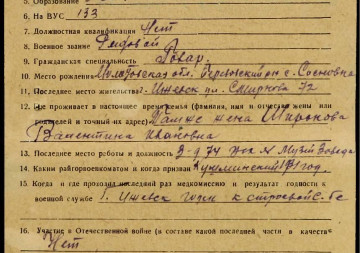 5. Образование
6. На ВУС 133
7. Должностная квалификация Нет
8. Военное звание Рядовой
9. Гражданская специальность Повар.
10. Место рождения Молотовская обл. с. Сосновка
11. Последнее место жительства г. Ижевск ул. Смирнова 72
12. Где проживает в настоящее время семья (фамилия, имя и отчество жены или
родителей и точный их адрес) Там же жена Миронова
Валентина Ивановна
13. Последнее место работы и должность з-д 74
14. Каким райгорвоенкоматом и когда призван год.
15. Когда и где проходил последний раз медкомиссию и результат годности к
военной службе г. Ижевск годен к строевой с-бе
16. Участие в Отечественной войне (в составе какой последней части, в качестве
Нет